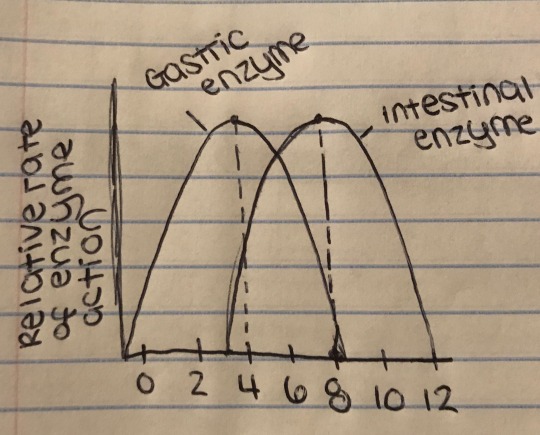 Gastric
enzyme
intestinal
enzyme
Relative rate
of enzyme
action
0 2 4 6 8 10 12